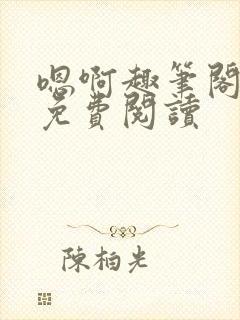 嗯啊趣筆閣
免費閱讀
陳柏光